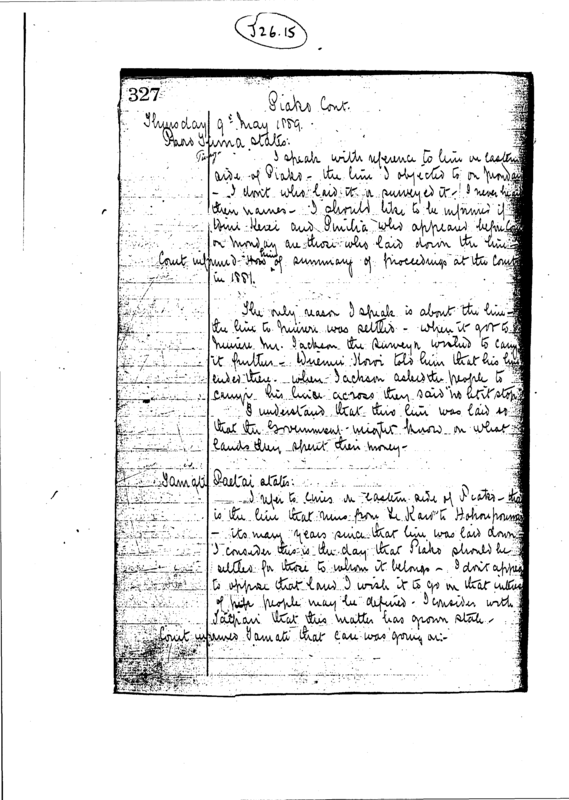 J26.15
327
Piako Cont.
Thursday 9th May 1889.
states:
I speak with reference to line on eastern
side of Piako - the line I objected to on Monday
- I don't who laid it or surveyed it - I never
their names - I should like to be informed if
and who appeared before
on Monday are those who laid down the line -
Court informed of summary of proceedings at the Court
in 1881.
The only reason I speak is about the line -
the line to was settled - when it got to
Mr. Jackson the surveyor wished to carry
it further - told him that his line
ended there. when Jackson asked the people to
carry his line across they said no let it stop
I understand that this line was laid so
that the Government might know on what
lands they spent their money -
Tamati Paetai states:
I refer to lines on eastern side of Piako - that
is the line that runs from Te to
- its many years since that line was laid down
I consider this is the day that Piako should be
settled for those to whom it belongs - I don't appear
to oppose that land I wish it to go on that
of people may be defined - I consider with
that this matter has grown stale -
Court informed Tamati that case was going on -